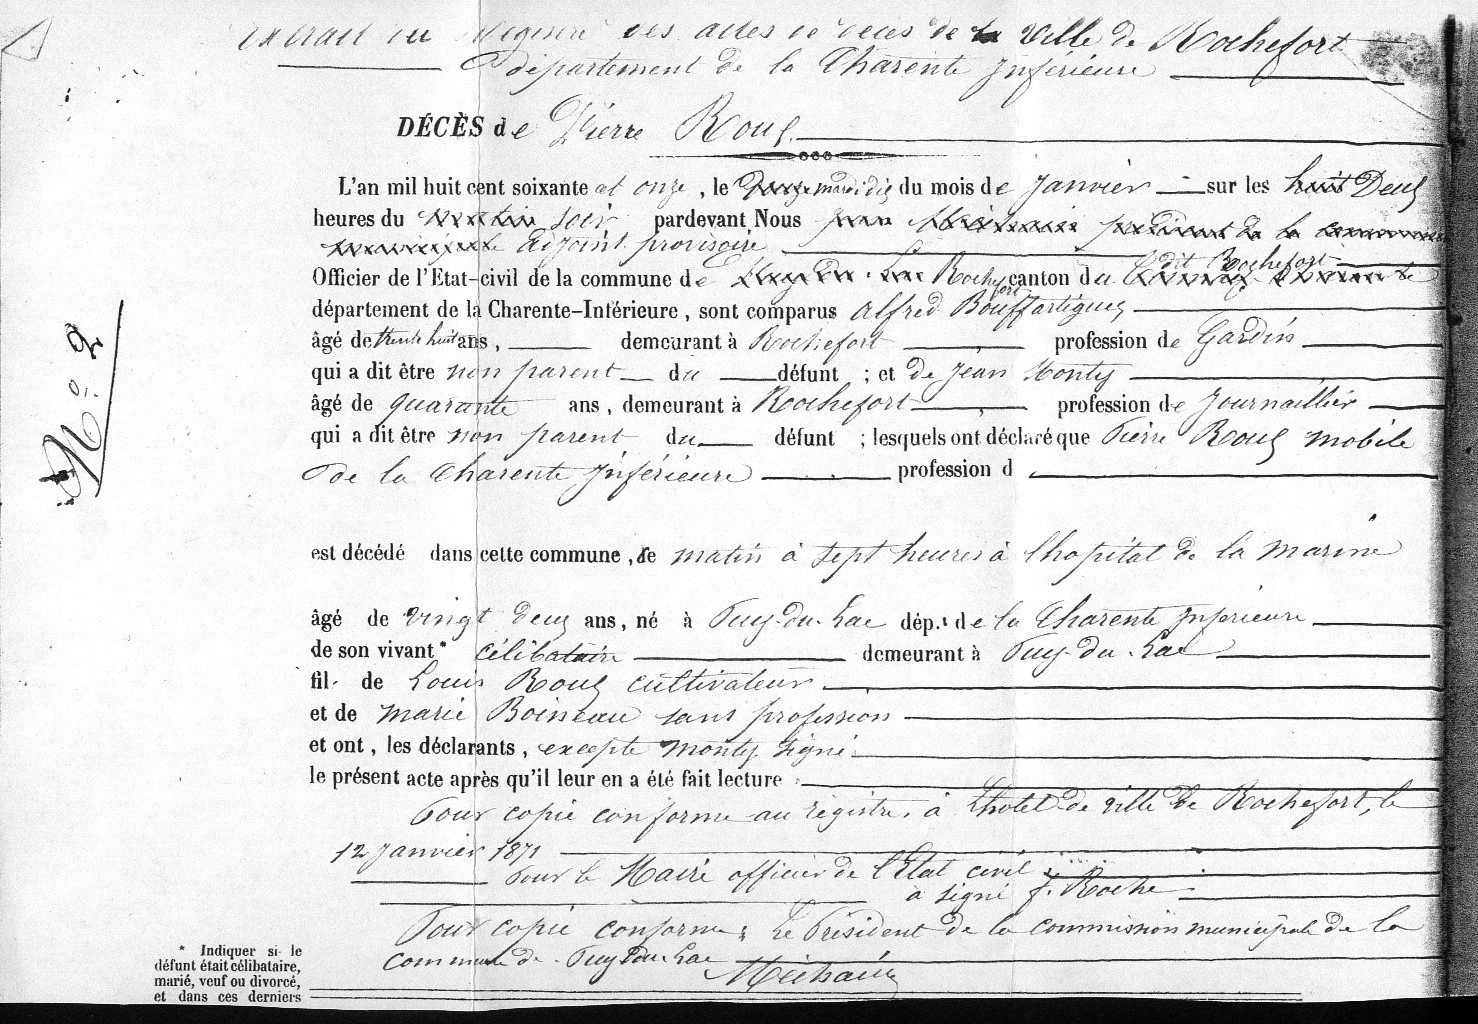 Extrait du Registre des actes de décès de la ville de Rochefort
département de la Charente Inférieure
DÉCÈS de Pierre Roux
L'an mil huit cent soixante et onze, le mardi dix du mois de Janvier sur les huit Deux
heures du matin soir pardevant Nous président de la commission
municipale adjoint provisoire
dit Rochefort
Officier de l'Etat-civil de la commune de Puy du Lac Rochefort canton du
département de la Charente-Inférieure, sont comparus Alfred Bouffartigues
âgé de trente huit ans, demeurant à Rochefort profession de Gardin
qui a dit être non parent du défunt ; et de Jean Monty
âgé de quarante ans, demeurant à Rochefort profession de Journaillier
qui a dit être non parent du défunt ; lesquels ont déclaré que Pierre Roux mobile
de la Charente Inférieure profession d
N° 2
est décédé dans cette commune, le matin à sept heures à l'hopital de la marine
âgé de vingt deux ans, né à Puy-du-Lac dép.t de la Charente Inférieure
de son vivant* célibataire demeurant à Puy-du-Lac
fil de Louis Roux cultivateur
et de Marie Boineau sans profession
et ont, les déclarants, excepté Monty signé
le présent acte après qu'il leur en a été fait lecture
Pour copie conforme au registre, à L'hotel de ville de Rochefort, le
12 Janvier 1871
Pour le Maire officier de l'Etat civil
a signé J. Roche
Pour copie conforme : Le Président de la commission municipale de la
commune de Puy du Lac
Méchain
* Indiquer si le
défunt était célibataire,
marié, veuf ou divorcé,
et dans ces derniers